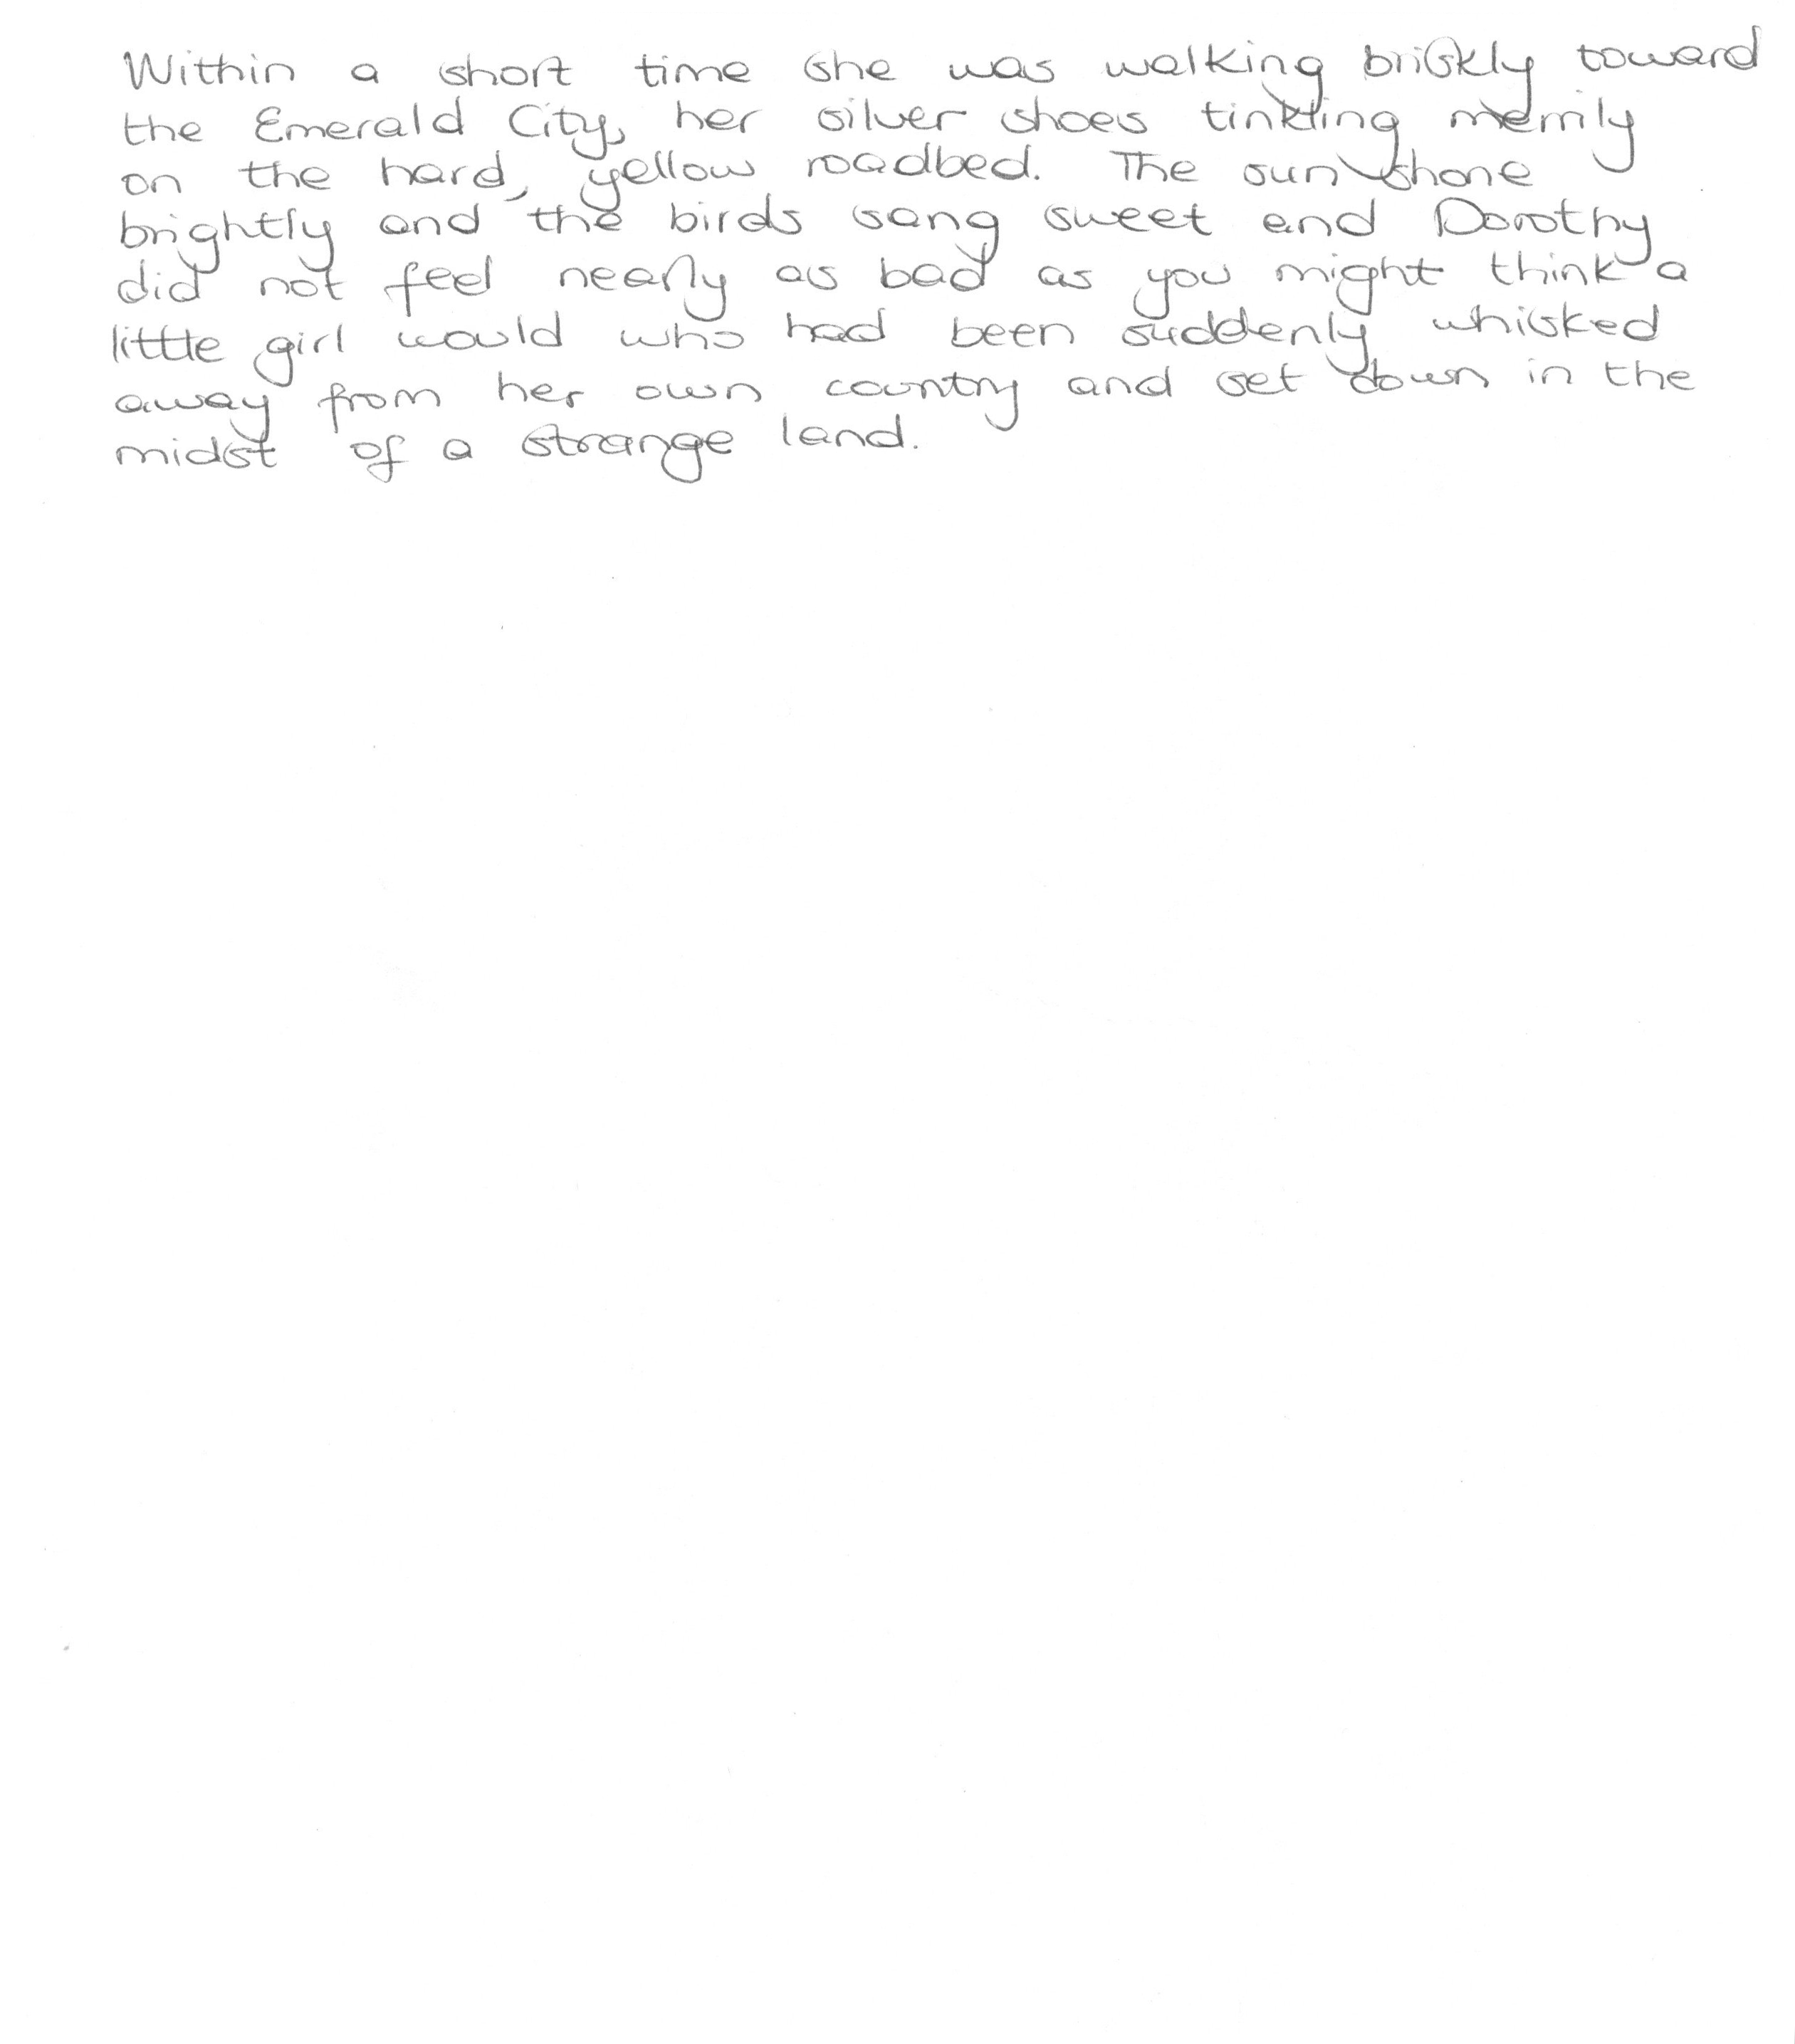 Within a short time she was walking briskly toward
the Emerald City, her silver shoes tinkling merrily
on the hard, yellow roadbed. The sun shone
brightly and the birds sang sweet and Dorothy
did not feel nearly as bad as you might think a
little girl would who had been suddenly whisked
away from her own country and set down in the
midst of a strange land.